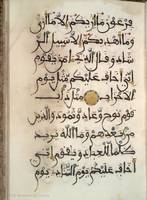 فرعون ما أريكم إلا ما أرى
وما أهديكم إلا سبيل
الرشاد وقال الذي ءامن يقوم
إني أخاف عليكم مثل يوم
الأحزاب مثل دأب
قوم نوح وعاد وثمود والذين
من بعدهم وما الله يريد
ظلما للعباد ويقوم إني
أخاف عليكم يوم التناد يوم